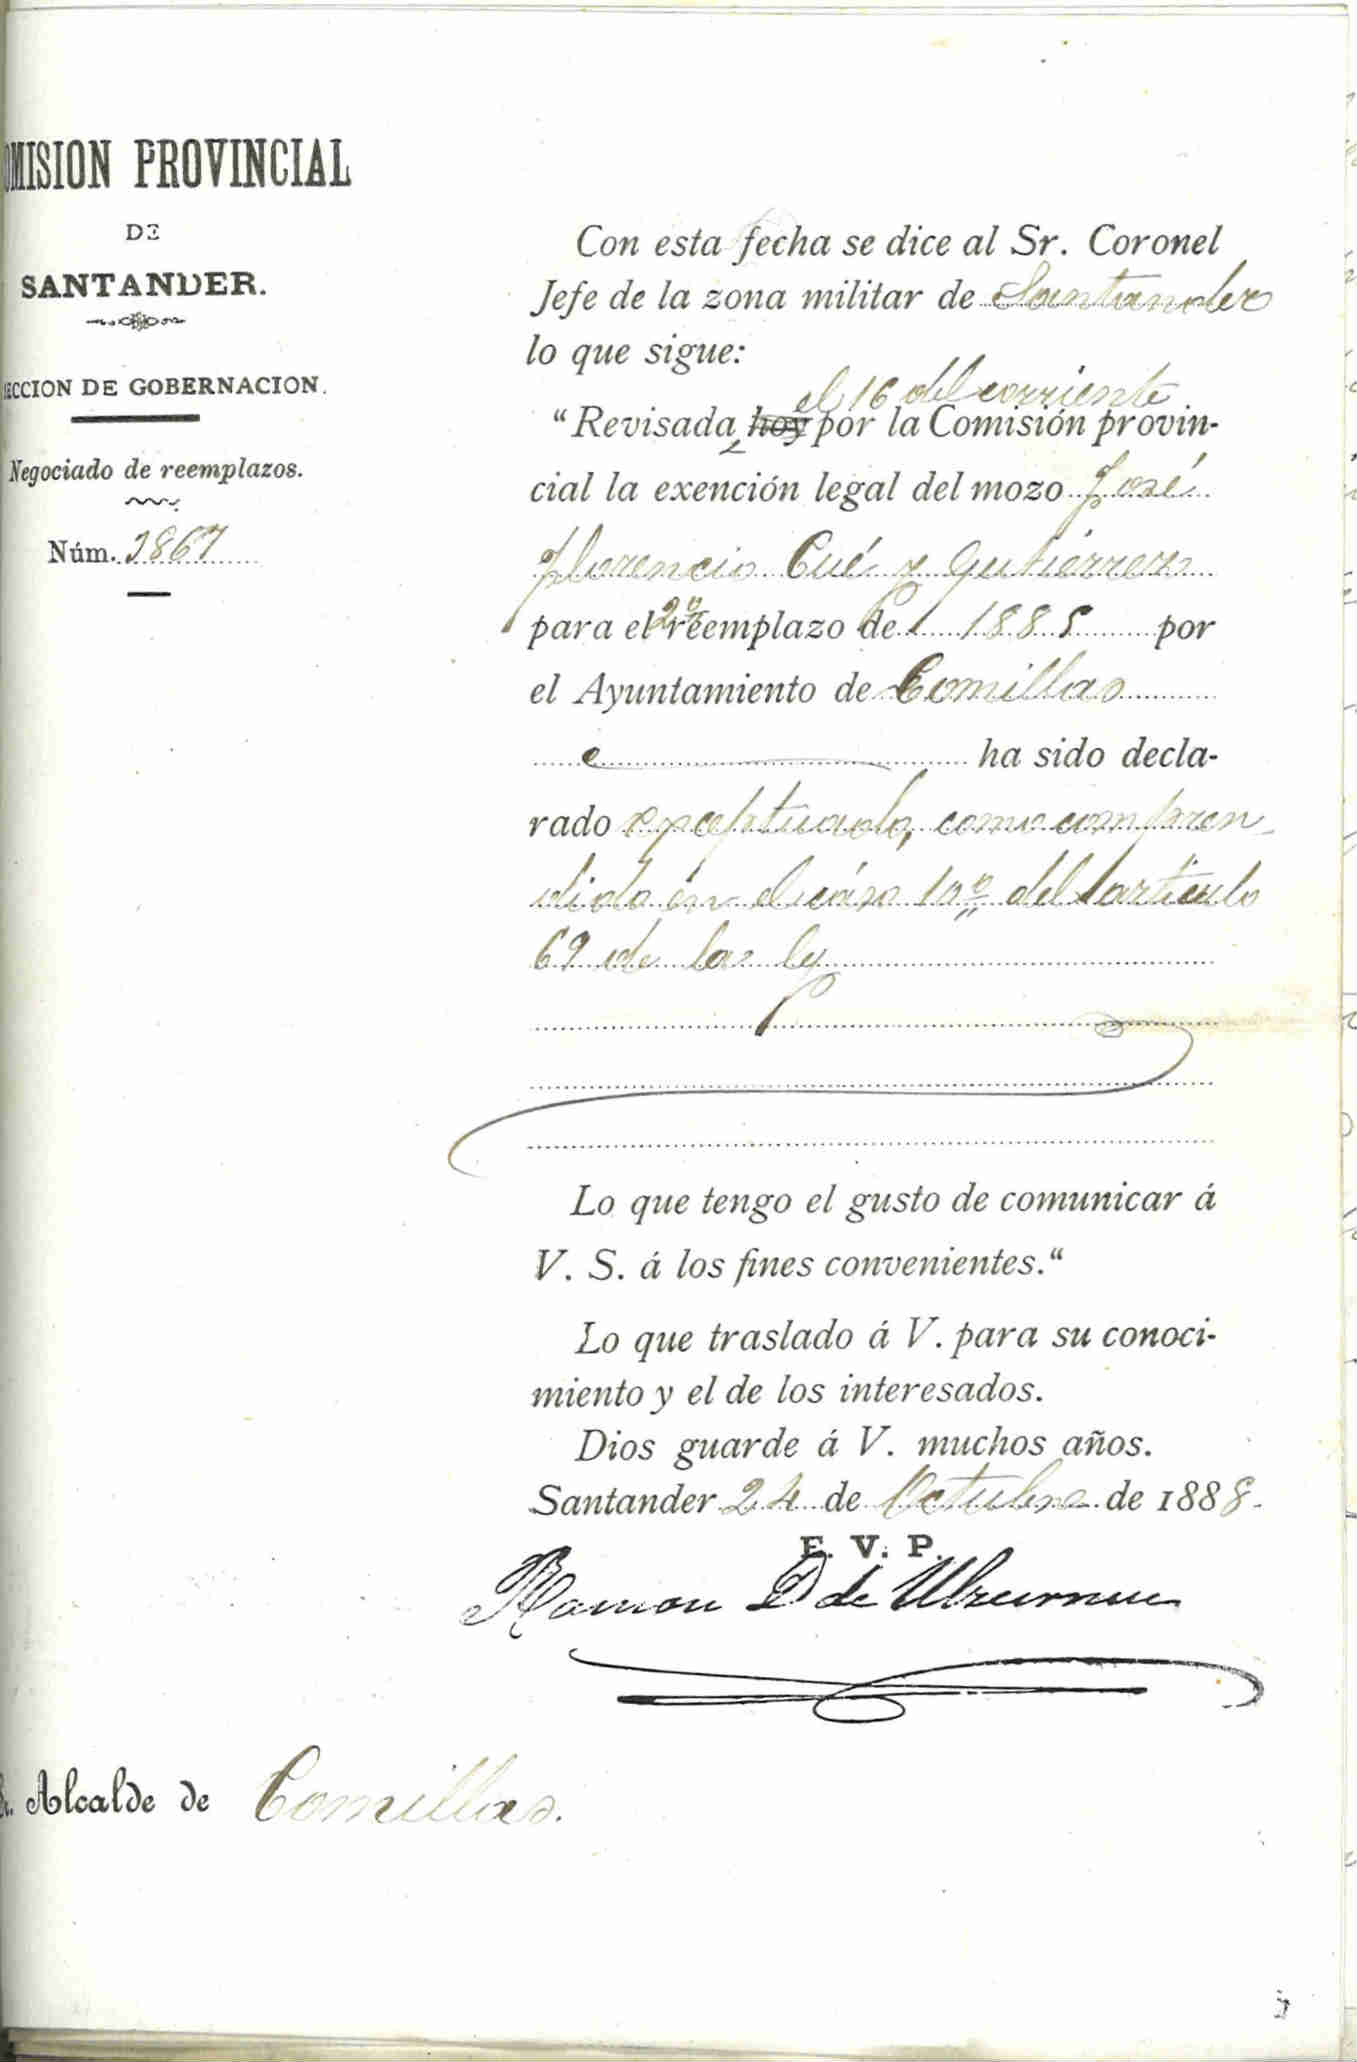 OMISION PROVINCIAL
DE
SANTANDER.
ECCION DE GOBERNACION.
Negociado de reemplazos.
Núm. 1867
Con esta fecha se dice al Sr. Coronel
Jefe de la zona militar de Santander
lo que sigue:
el 16 del corriente
"Revisada hoy por la Comisión provin-
cial la exención legal del mozo José
Florencio Cué y Gutiérrez
para el 2º reemplazo de 1885 por
el Ayuntamiento de Comillas
ha sido decla-
rado exceptuado, como compren
dido en el caso 10º del artículo
69 de la ley
Lo que tengo el gusto de comunicar á
V. S. á los fines convenientes."
Lo que traslado á V. para su conoci-
miento y el de los interesados.
Dios guarde á V. muchos años.
Santander 24 de Octubre de 1888.
E. V. P.
Ramon D de
. Alcalde de Comillas.